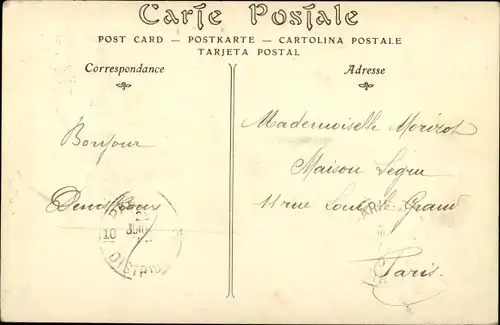 Carte Postale
POST CARD — POSTKARTE — CARTOLINA POSTALE
TARJETA POSTAL
Correspondance
Adresse
Bonjour
Mademoiselle Morizot
Maison
11 rue Louis-le-Grand
Paris.
10
DISTRIB